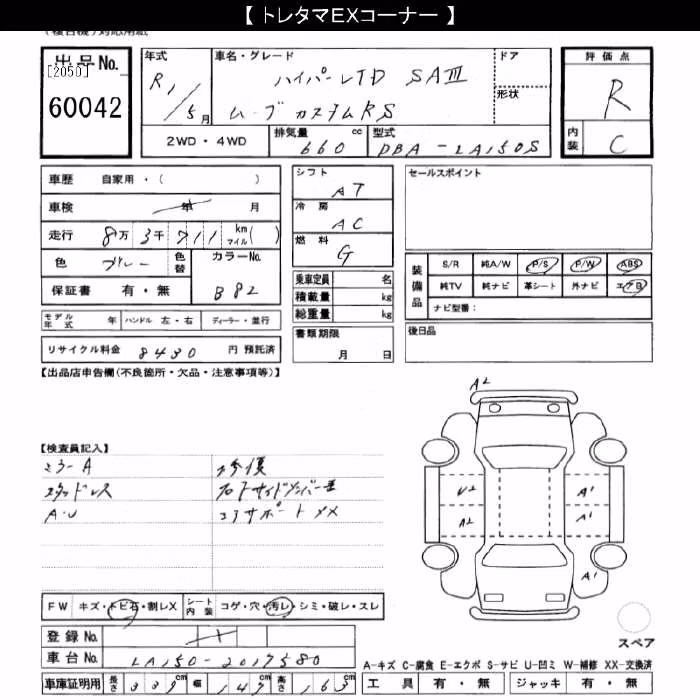 【 トレタマEXコーナー 】
出品No.
[2050]
60042
年式
R1/5月
車名・グレード
ハイパーLTD SAⅢ
ムーブカスタムRS
ドア
形状
2WD・4WD
排気量 660 cc
型式 DBA-LA150S
評価点
R
内装
C
車歴 自家用・( )
車検 年 月
走行 8万 3千 711 km マイル( )
色 ブルー
色替
カラーNo. B82
保証書 有・無
モデル年式 年
ハンドル 左・右
ディーラー・並行
リサイクル料金 8430 円 預託済
シフト AT
冷房 AC
燃料 G
乗車定員 名
積載量 kg
総重量 kg
書類期限
月 日
セールスポイント
装備品
S/R 純A/W P/S P/W ABS
純TV 純ナビ 革シート 外ナビ エアB
ナビ型番：
後日品
【出品店申告欄(不良箇所・欠品・注意事項等)】
【検査員記入】
ミラーA
スタッドレス
A・U
フロントサイドメンバー
コアサポートXX
A2
U2
A2
A1
A1
A1
FW キズ・トビ石・割レX
シート内装 コゲ・穴・汚レ・シミ・破レ・スレ
登録No.
車台No. LA150-2017580
車庫証明用 長さ 339cm 幅 147cm 高さ 163cm
スペア
A-キズ C-腐食 E-エクボ S-サビ U-凹ミ W-補修 XX-交換済
工具 有・無 ジャッキ 有・無